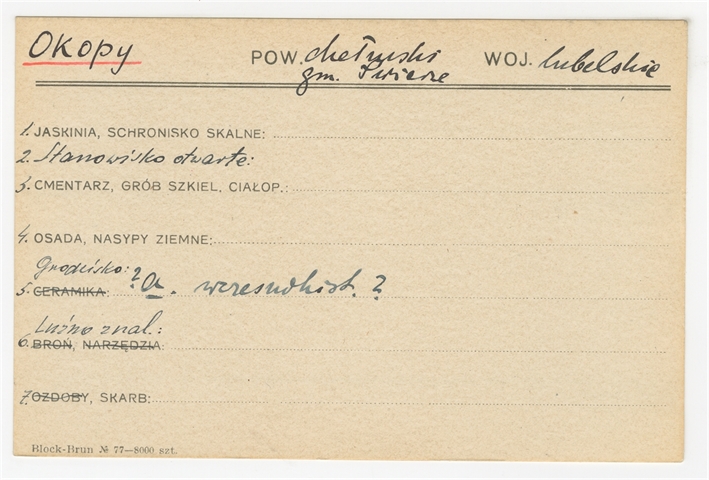 OKopy POW. chełmski WOJ. lubelskie
gm. Świerże
1. JASKINIA, SCHRONISKO SKALNE:
2. Stanowisko otwarte:
3. CMENTARZ, GRÓB SZKIEL. CIAŁOP.:
4. OSADA, NASYPY ZIEMNE:
Grodzisko:
5. CERAMIKA: ? a. wczesnohist. ?
Luźno znal.:
6. BROŃ, NARZĘDZIA:
7. OZDOBY, SKARB:
Block-Brun № 77—8000 szt.